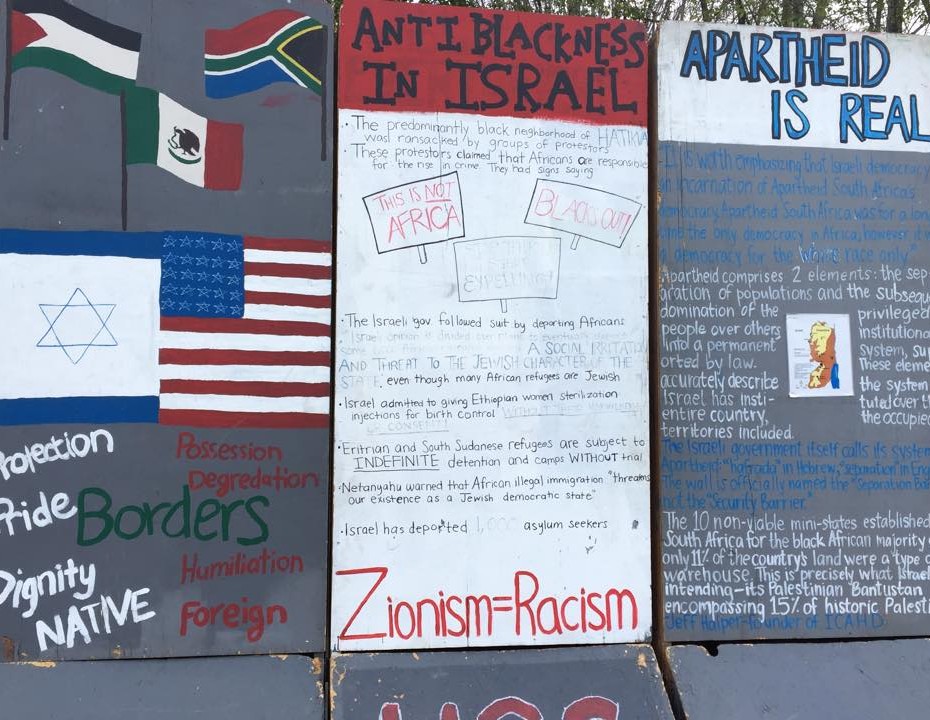 Projection
Pride
Dignity
NATIVE
Borders
Possession
Degredation
Humiliation
Foreign
ANTI BLACKNESS
IN ISRAEL
• The predominantly black neghborhood of HATIKVA
was ransacked by groups of protestors
• These protestors claimed that Africans are responsible
for the rise in crime. They had signs saying
THIS IS NOT
AFRICA
BLACKS OUT!
EXPELLING!
• The Israeli gov. followed suit by deporting Africans
A SOCIAL IRRITATION
AND THREAT TO THE JEWISH CHARACTER OF THE
STATE, even though many African refugees are Jewish
• Israel admitted to giving Ethiopian women sterilization
injections for birth control WITHOUT THEIR
OR CONSENT!!!
• Eritrian and South Sudanese refugees are subject to
INDEFINITE detention and camps WITHOUT trial
• Netanyahu warned that African illegal immigration "threatens
our existence as a Jewish democratic state"
• Israel has deported 1,000 asylum seekers
Zionism=Racism
APARTHEID
IS REAL
"It is worth emphasizing that Israeli democracy
an incarnation of Apartheid South Africa's
democracy. Apartheid South Africa was for a long
time the only democracy in Africa, however it
a democracy for the white race only"
Apartheid comprises 2 elements: the sep-
aration of populations and the subseque
domination of the privileged
people over others institutiona
into a permanent system, su
orted by law. These eleme
accurately describe the system
Israel has insti- tuted over th
entire country, the occupied
territories included.
The Israeli government itself calls its system
Apartheid: "hafrada" in Hebrew, "separation" in Eng
The wall is officially named the "Separation Bar
not the "Security Barrier."
The 10 non-viable mini-states established
South Africa for the black African majority
only 11% of the country's land were a type o
warehouse. This is precisely what Israel
intending—its Palestinian Bantustan
encompassing 15% of historic Palesti
Jeff Halper-founder of ICAHD